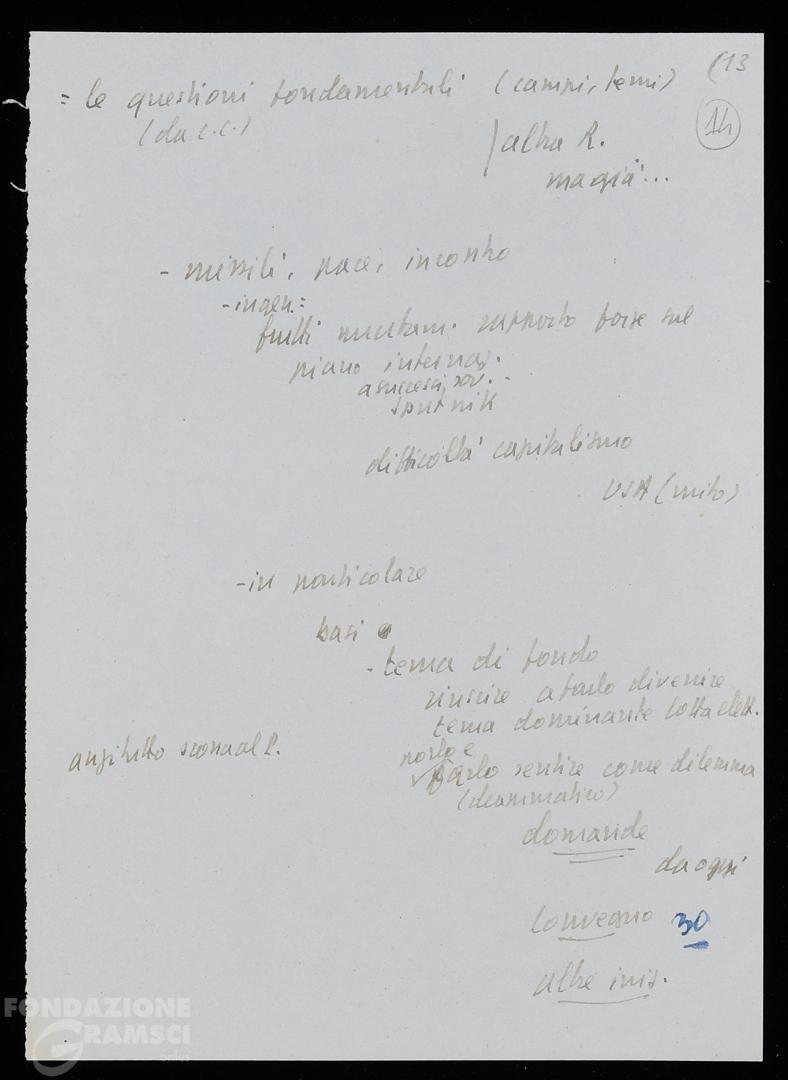 = le questioni fondamentali (campi, temi) (13
(da c.c.) 14
altra R.
magia...
- missili, pace, incontro
- ingen. =
frutti mutam. rapporto forze sul
piano internaz.
a successi sov. -
sputnik
difficoltà capitalismo
USA (mito)
- in particolare
basi
- tema di fondo
riuscire a farlo divenire
tema dominante lotta elett.
anzitutto scossa al P. porlo e
farlo sentire come dilemma
(drammatico)
domande
da oggi
Convegno 30
altre iniz.
FONDAZIONE
GRAMSCI
onlus